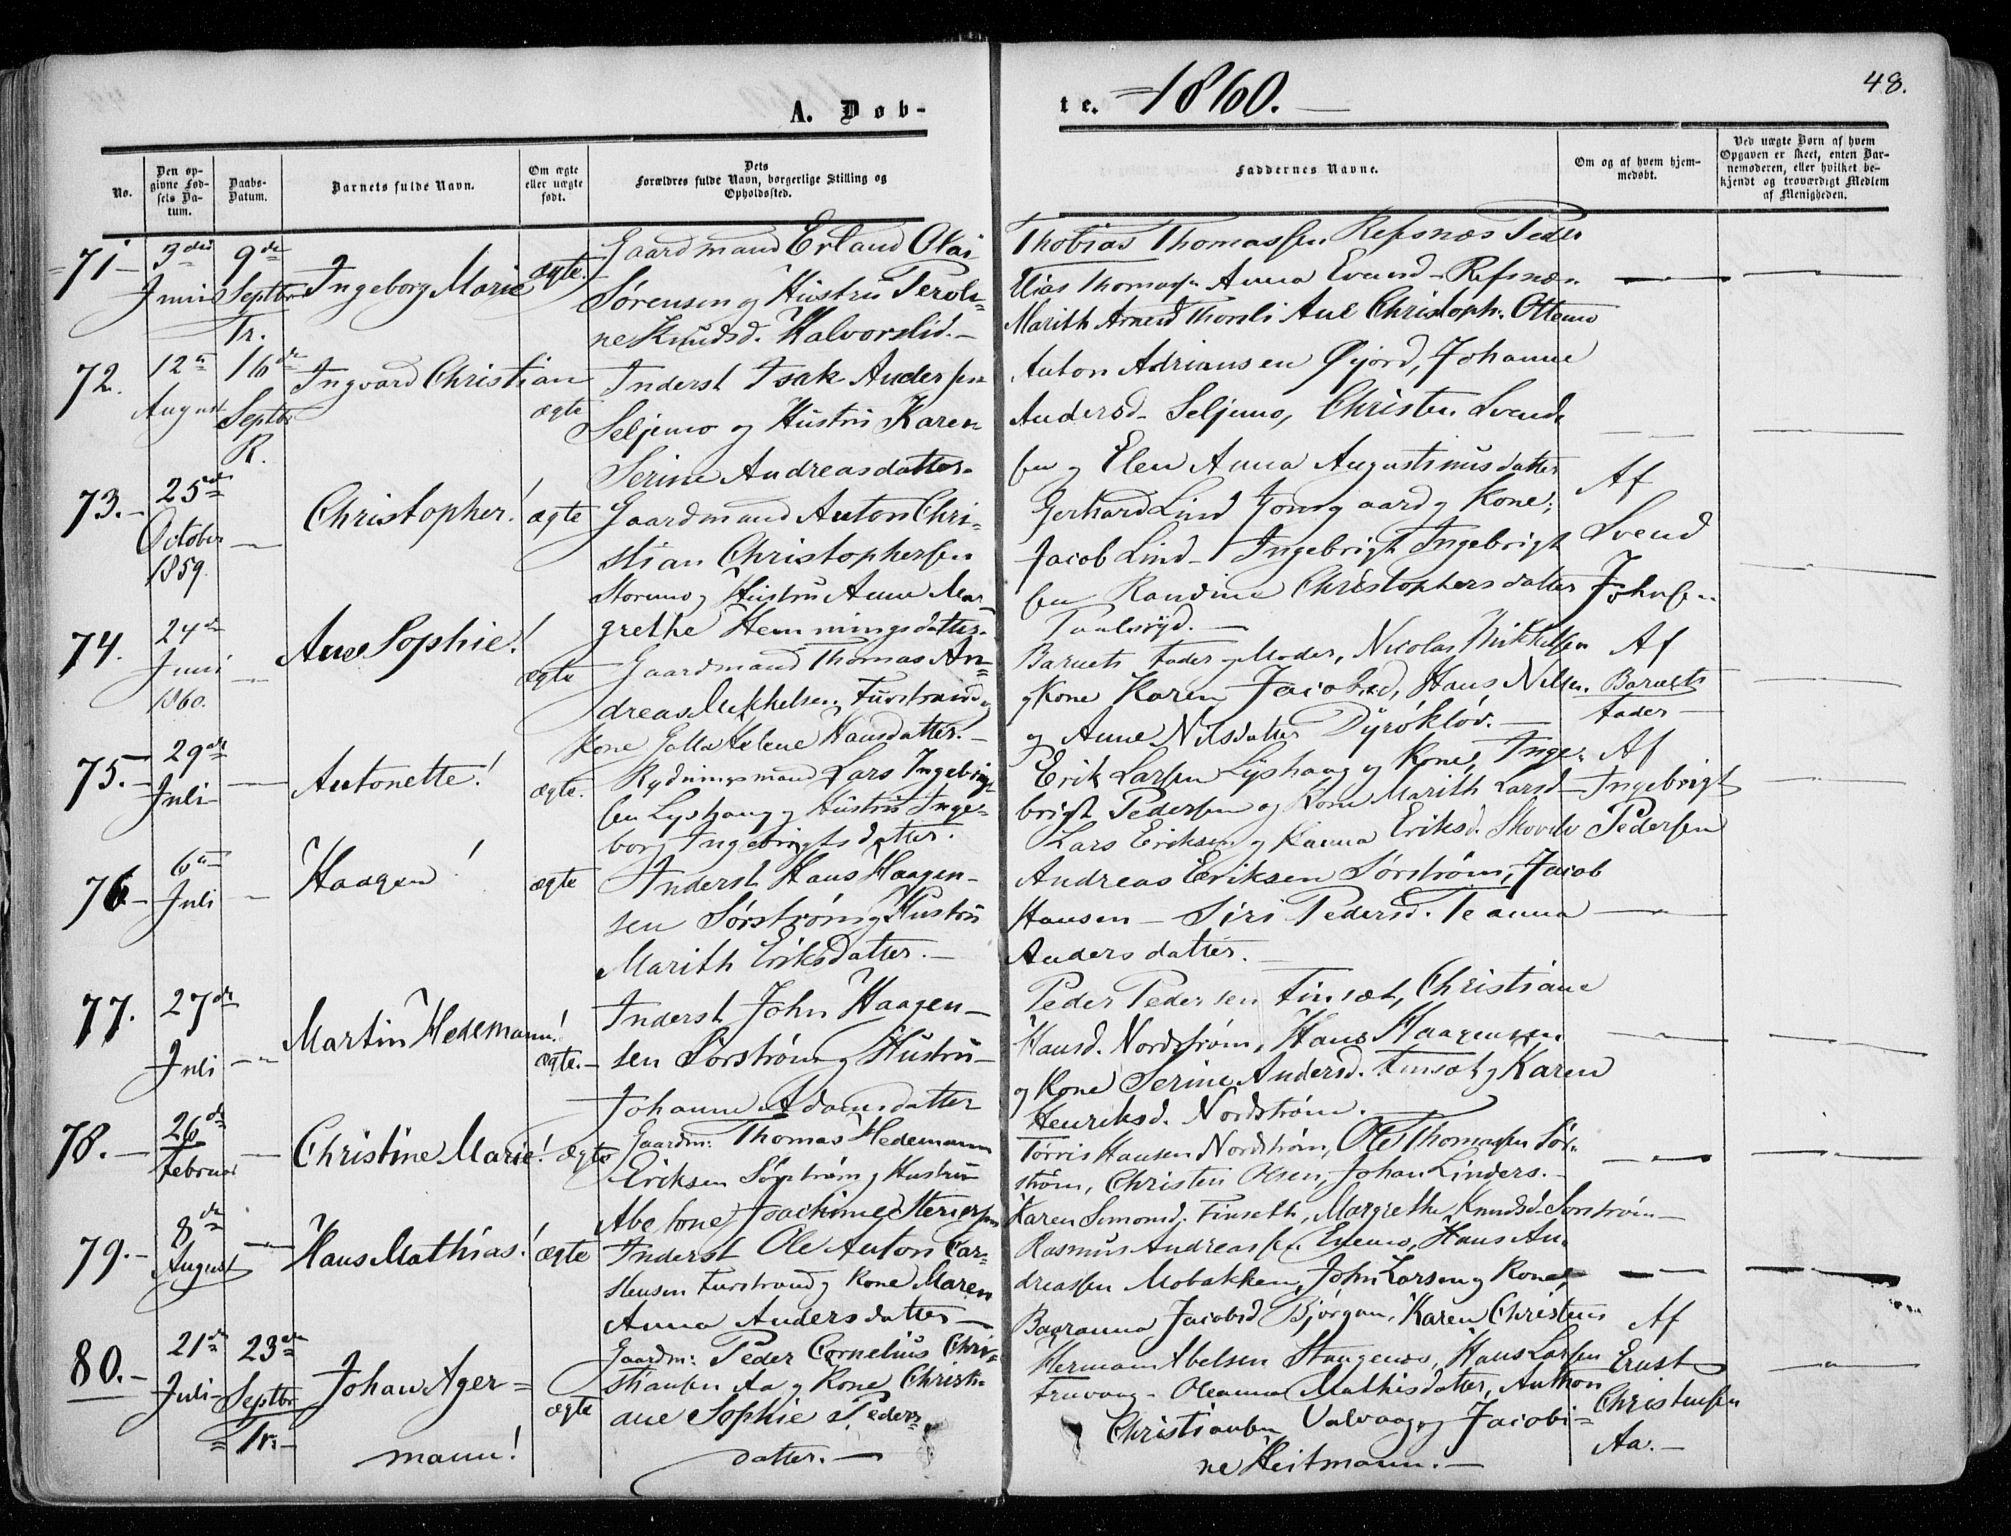 48.
A. Døb-
te. 1860.
No.
Den op-
givne Fød-
sels Da-
tum.
Daabs-
Datum.
Barnets fulde Navn.
Om ægte
eller uægte
født.
Dets
Forældres fulde Navn, borgerlige Stilling og
Opholdssted.
Faddernes Navne.
Om og af hvem hjem-
medøbt.
Ved uægte Børn af hvem
Opgaven er skeet, enten Bar-
nemoderen, eller hvilket be-
kjendt og troværdigt Medlem
af Menigheden.
71
3die
Junii
9de
Septbr
Tr.
Ingeborg Marie
ægte.
Gaardmand Erland Olai
Sørensen og Hustru Peroli=
ne Knudsd. Halvorslid.
Thobias Thomassen Refsnes Peder
Elias Thomass. Anna Evensd Refsnæs.
Marith Arnesd Thorsli Ane Christoph. Ottemo
72.
12te
August
16de
Septbr
R.
Ingvard Christian
ægte
Inderst Isak Andersen
Seljemo og Hustru Karen
Serine Andreasdatter.
Anton Adriansen Øijord, Johanne
Andersd. Seljemo, Christen Svend
sen og Elen Anna Augustinusdatter
73.
25de
October
1859.
Christopher!
ægte
Gaardmand Anton Chri-
stian Christophersen
Stormo og Hustru Anne Mar-
grethe Hemmingsdatter.
Gerhard Lind Gomsgaard og Kone;
Jacob Lind - Ingebrigt Ingebrigt
sen Randine Christophersdatter
Af
Svend
Johnsen
74.
24de
Juni
1860.
Ane Sophie!
ægte
Gaardmand Thomas An=
dreas Mikkelsen, Furstrand og
Kone Golla Helene Hansdatter.
Barnets Fader og Moder, Nicolas Mikkelsen
og Kone Karen Jacobsd, Hans Nilsen
og Anne Nilsdatter Dyrökløv.
Af
Barnets
Fader
75.
29de
Juli
Antonette!
ægte.
Rydningsmand Lars Ingebrigt
sen Lyshaug og Hustru Inge-
borg Ingebrigtsdatter.
Erik Larsen Lyshaug og Kone, Inge-
brigt Pedersen og Kone Marith Larsd
Lars Eriksen og Hanna Eriksd.
Af
Ingebrigt
Pedersen
76
6te
Juli
Haagen!
ægte
Inderst Hans Haagen-
sen Sørstrøm og Hustru
Marith Eriksdatter.
Andreas Eriksen Sørstrøm, Jacob
Hansen - Siri Pedersd.
Andersdatter.
77.
27de
Juli
Martin Hedemann!
ægte.
Inderst John Haagen-
sen Sørstrøm og Hustru
Johanne Adamsdatter
Peder Pedersen Finsæt, Christiane
Hansd. Nordstrøm, Hans Haagensen
og Kone Serine Andersd. Finsæt og Karen
Henriksd. Nordstrøm.
78.
26de
Februar
Christine Marie!
ægte
Gaardm: Thomas Hedemann
Eriksen Sørstrøm og Hustru
Abelone Joachime
Tørris Hansen Nordstrøm, Ole Thomassen Sør-
strøm, Christen Olsen, Johan Linders.
Karen Simonsd. Finseth, Margrethe Knudsd. Sørstrøm
79.
8de
August
Hans Mathias!
ægte
Inderst Ole Anton Car-
stensen Furstrand og Kone Maren
Anna Andersdatter
Rasmus Andreassen Enemo, Hans An-
dreassen Mobakken, John Larsen og Kone,
Jacobsd Bjørgan, Karen Christens
80.
21de
Juli
23de
Septbr
Tr.
Johan Ager=
mann!
ægte
Gaardm: Peder Cornelius Chri-
stiansen Aa og Kone Christi-
ane Sophie Peders
datter.
Herman Abelsen Stangenes, Hans Larsen
Oleanna Mathisdatter, Anthon
Christiansen Valvaag og Jacobi=
ne Heitmann.
Af
Ernst
Christensen
Aa.